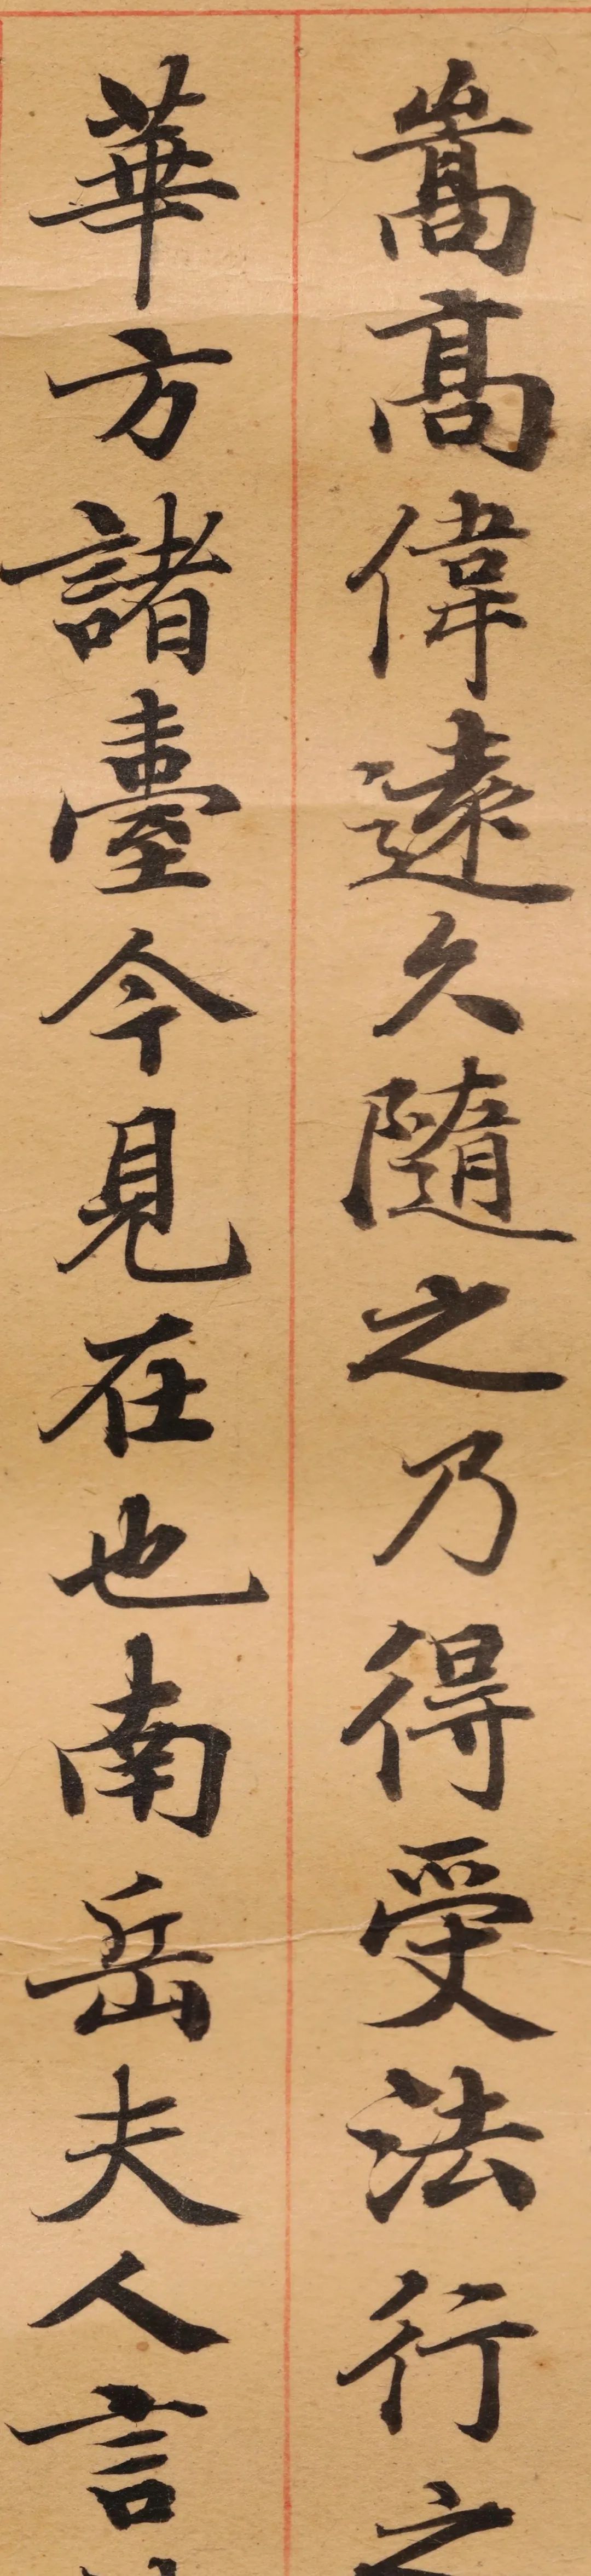 嵩高偉遠久隨之乃得受法行之
華方諸臺今見在也南岳夫人言